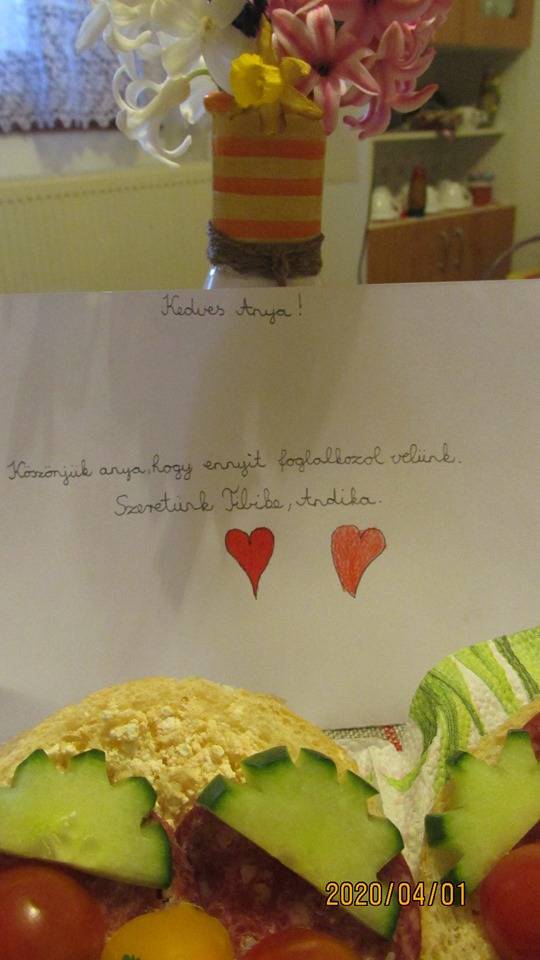 Kedves Anya!
Köszönjük anya, hogy ennyit foglalkozol velünk.
Szeretünk Tibibe, Andika.
2020/04/01